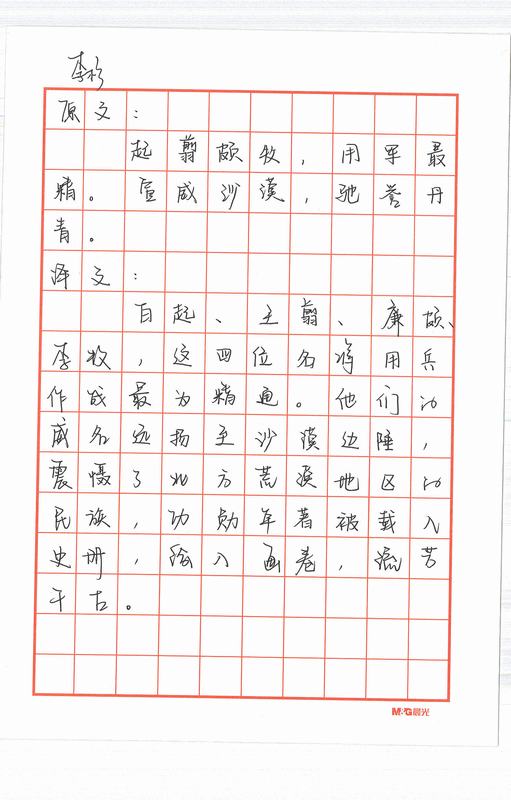 李杉
原文：
起翦颇牧，用军最
精。宣威沙漠，驰誉丹
青。
译文：
白起、王翦、廉颇、
李牧，这四位名将用兵
作战最为精通。他们的
威名远扬至沙漠边陲，
震慑了北方荒漠地区的
民族，功勋卓著被载入
史册，绘入画卷，流芳
千古。
M&G晨光